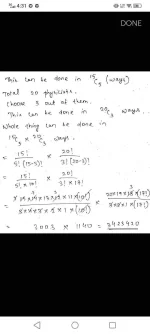 4:31
DONE
This can be done in ¹⁵C₅ (ways)
Total 20 physicists.
Choose 3 out of them.
This can be done in ²⁰C₃ ways.
Whole thing can be done in
¹⁵C₅ × ²⁰C₃ ways.
= 15! / 5!(15-5)! × 20! / 3!(20-3)!
= 15! / 5! × 10! × 20! / 3! × 17!
= 3003 × 1140 = 3423420